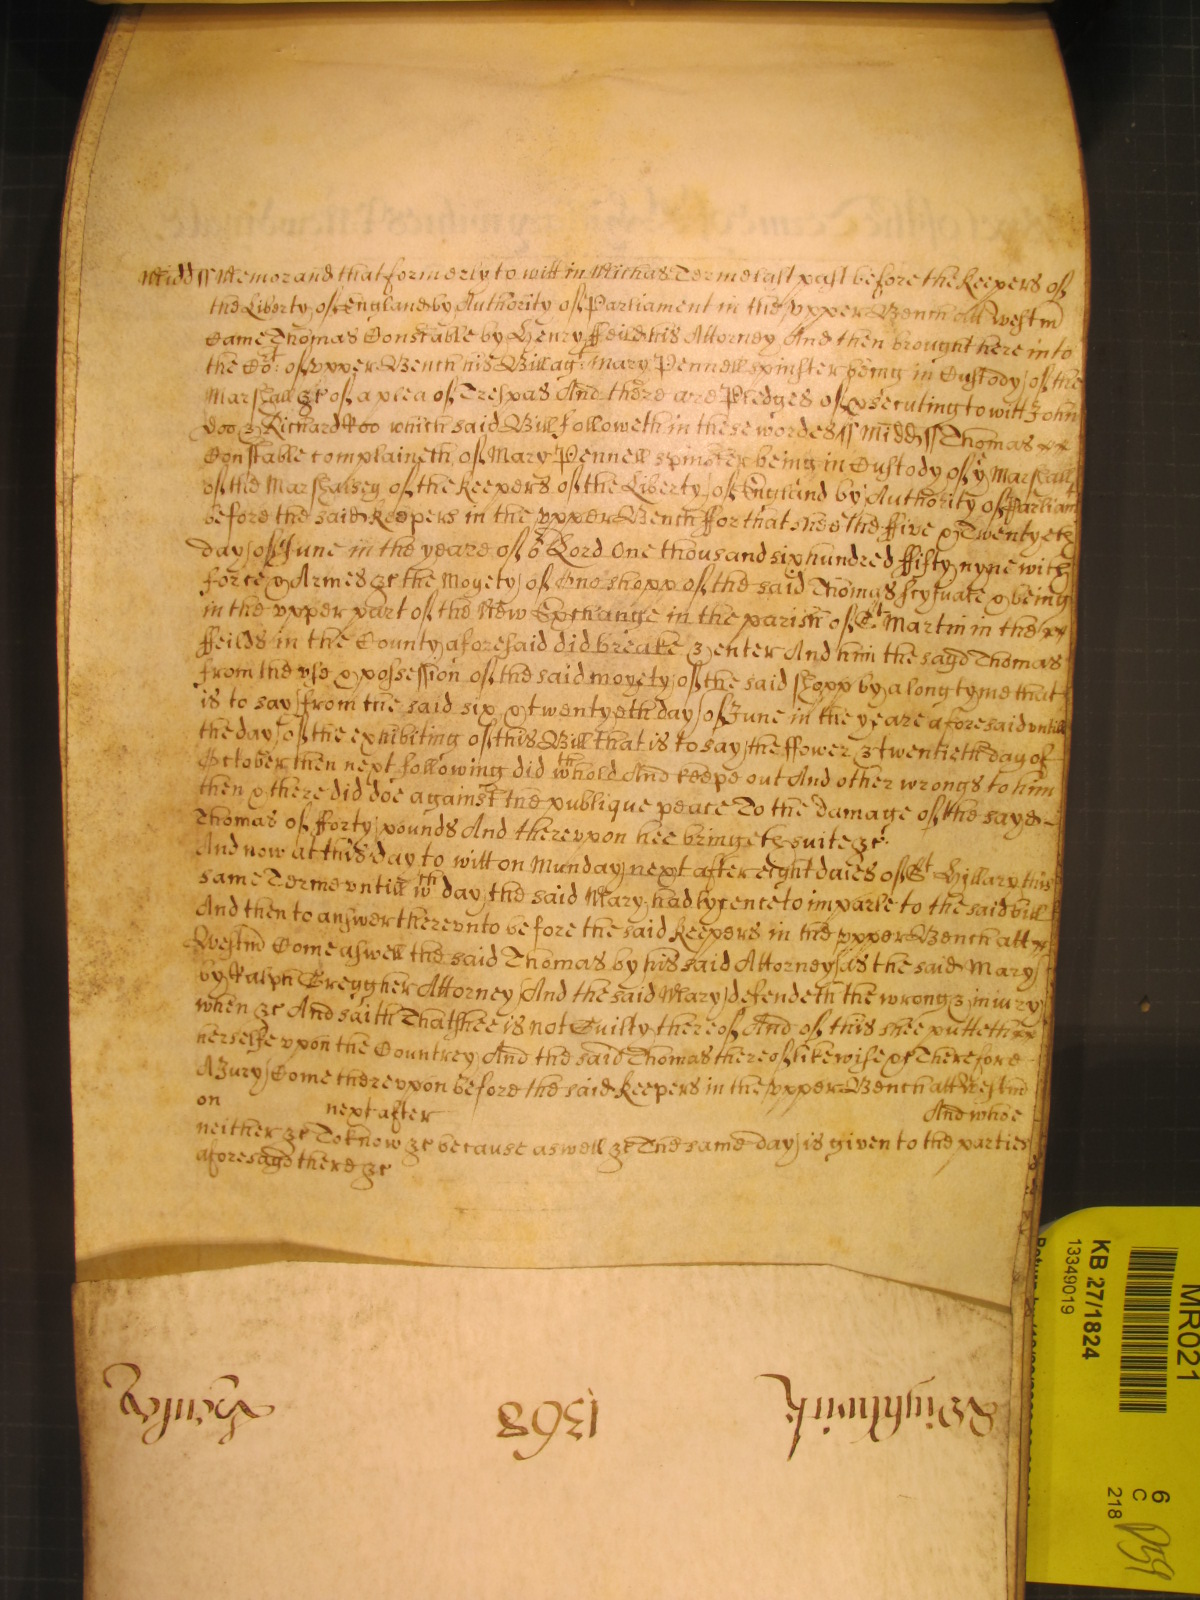 Midd ss Memorand that formerly to witt in Michas Terme last past before the Keepers of
the Liberty of England by Authority of Parliament in the vpper Bench att Westm
Came Thomas Constable by Henry ffeild his Attorney And then brought here into
the Cort: of vpper Bench his Bill agt: Mary Pennell spinster being in Custody of the
Marshall &c of a plea of Trespas And there are Pledges of psecuting to witt John
doo & Richard Roo which said Bill followeth in these wordes ss Midd ss Thomas
Constable complaineth of Mary Pennell spinster being in Custody of ye Marshall
of the Marshalsey of the Keepers of the Liberty of England by Authority of Parliam
before the said Keepers in the vpper Bench ffor that shee the ffive & Twentyeth
day of June in the yeare of or Lord One thousand six hundred ffifty nyne with
force & Armes &c the Moyety of One shopp of the said Thomas scytuate & being
in the vpper part of the New Exchange in the parish of St Martin in the
ffeilds in the County aforesaid did breake & enter And him the sayd Thomas
from the vse & possession of the said moyety of the said shopp by a long tyme that
is to say from the said six & twentyeth day of June in the yeare aforesaid vntill
the day of the exhibiting of this Bill that is to say the ffower & twentieth day of
October then next following did wthhold And keepe out And other wrongs to him
then & there did doe against the publique peace To the damage of the sayd
Thomas of fforty pounds And therevpon hee bringeth suite &c.
And now at this day to witt on Munday next after eight daies of St Hillary this
same Terme vntill wch day the said Mary had lycence to imparle to the said bill
And then to answer therevnto before the said Keepers in the vpper Bench att
Westm Come aswell the said Thomas by his said Attorney as the said Mary
by Ralph Gregg her Attorney And the said Mary defendeth the wrong & iniury
when &c And saith That shee is not Guilty thereof And of this shee putteth
herselfe vpon the Countrey And the said Thomas thereof likewise &c Therefore
A Jury Come therevpon before the said Keepers in the vpper Bench att Westm
on next after And whoe
neither &c To know &c because aswell &c The same day is given to the parties
aforesayd there &c
Wightwick 1368 Henley
MR021
KB 27/1824
13349019
6
C
218